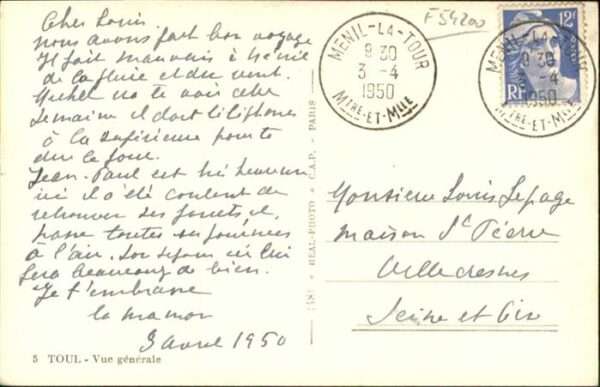 Cher Louis.
nous avons fait bon voyage
Il fait mauvais à Ménil
de la pluie et du vent.
Michel va te voir cette
semaine il doit téléphoner
à la Supérieure pour te
dire le jour.
Jean-Paul est très heureux
ici il a été content de
retrouver ses jouets, il
passe toutes ses journées
à l'air. Son séjour ici lui
fera beaucoup de bien.
Je t'embrasse
ta maman
3 avril 1950
5 TOUL - Vue générale
REAL-PHOTO C.A.P. - PARIS
F54200
MENIL-LA-TOUR
9 30
3 - 4
1950
MTHE-ET-MLLE
12F
RF
MENIL-LA-
9 30
- 4
1950
ET-MLLE
Monsieur Louis Lepage
maison St Pierre
Villecresnes
Seine et Oise